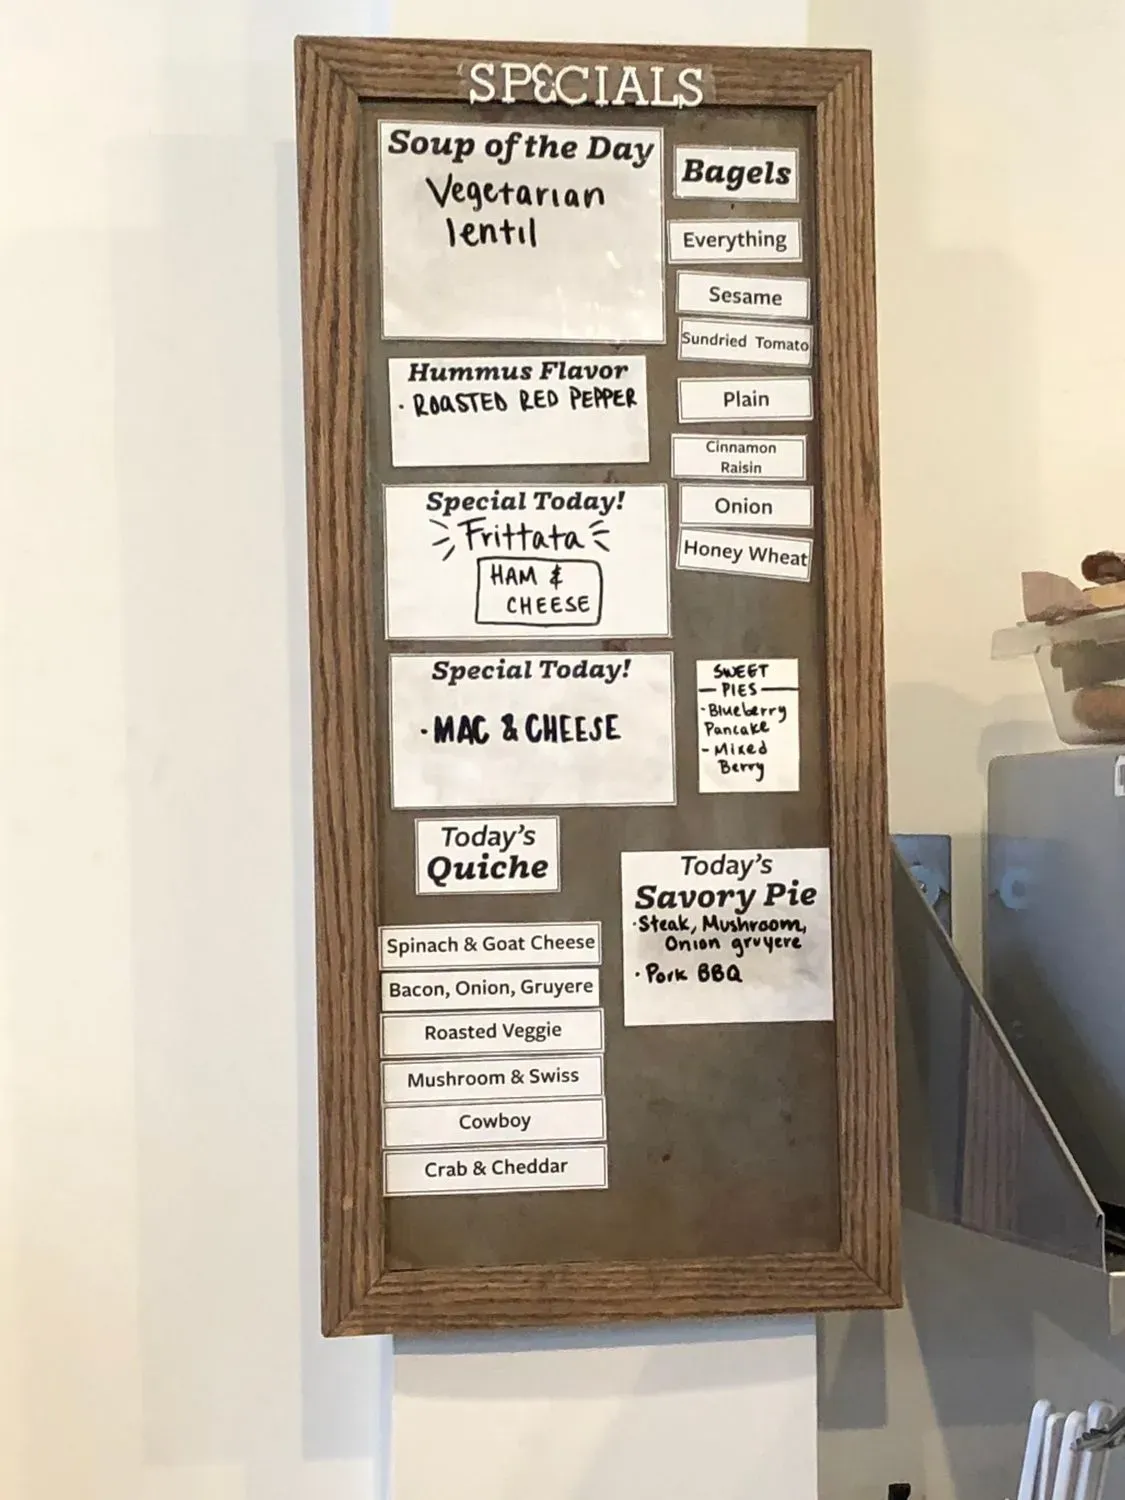 SPECIALS
Soup of the Day
Vegetarian
lentil
Hummus Flavor
· ROASTED RED PEPPER
Special Today!
Frittata
HAM &
CHEESE
Special Today!
· MAC & CHEESE
Today's
Quiche
Spinach & Goat Cheese
Bacon, Onion, Gruyere
Roasted Veggie
Mushroom & Swiss
Cowboy
Crab & Cheddar
Bagels
Everything
Sesame
Sundried Tomato
Plain
Cinnamon
Raisin
Onion
Honey Wheat
SWEET
PIES
· Blueberry
Pancake
- Mixed
Berry
Today's
Savory Pie
· Steak, Mushroom,
Onion gruyere
· Pork BBQ